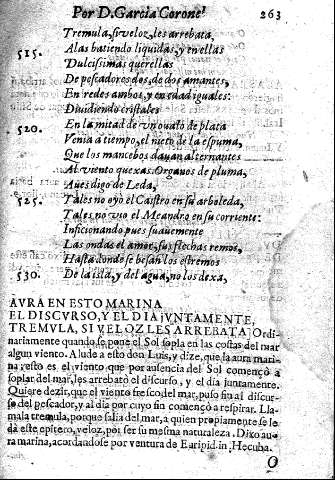 Por D. Garcia Coronel 263
Tremula, si veloz, les arrebata,
515. Alas batiendo liquidas, y en ellas
Dulcissimas querellas
De pescadores dos, de dos amantes,
En redes ambos, y en edad iguales:
Diuidiendo cristales
520. En la mitad de vn ouato de plata
Venia a tiempo, el nieto de la espuma,
Que los mancebos dauan alternantes
Al viento quexas: Organos de pluma,
Aues digo de Leda,
525. Tales no oyò el Caistro en su arboleda,
Tales no viò el Meandro en su corriente:
Inficionando pues suauemente
Las ondas el amor, sus flechas remos,
Hasta donde se besan los estremos
530. De la isla, y del agua, no los dexa,
AVRA EN ESTO MARINA
EL DISCVRSO, Y EL DIA JVNTAMENTE,
TREMVLA, SI VELOZ LES ARREBATA. Ordi-
nariamente quando se pone el Sol sopla en las costas del mar
algun viento. Alude a esto don Luis, y dize, que la aura mari-
na resto es el viento que por ausencia del Sol començò a
soplar del mar, les arrebatò el discurso, y el dia juntamente.
Quiere dezir, que el viento fresco del mar, puso fin al discur-
so del pescador, y al dia por cuyo fin començò a respirar. Lla-
mala tremula, porque salia del mar, a quien propriamente se le
da este epiteto, veloz, por ser su mesma naturaleza. Dixo au-
ra marina, acordandose por ventura de Euripid. in Hecuba.
O